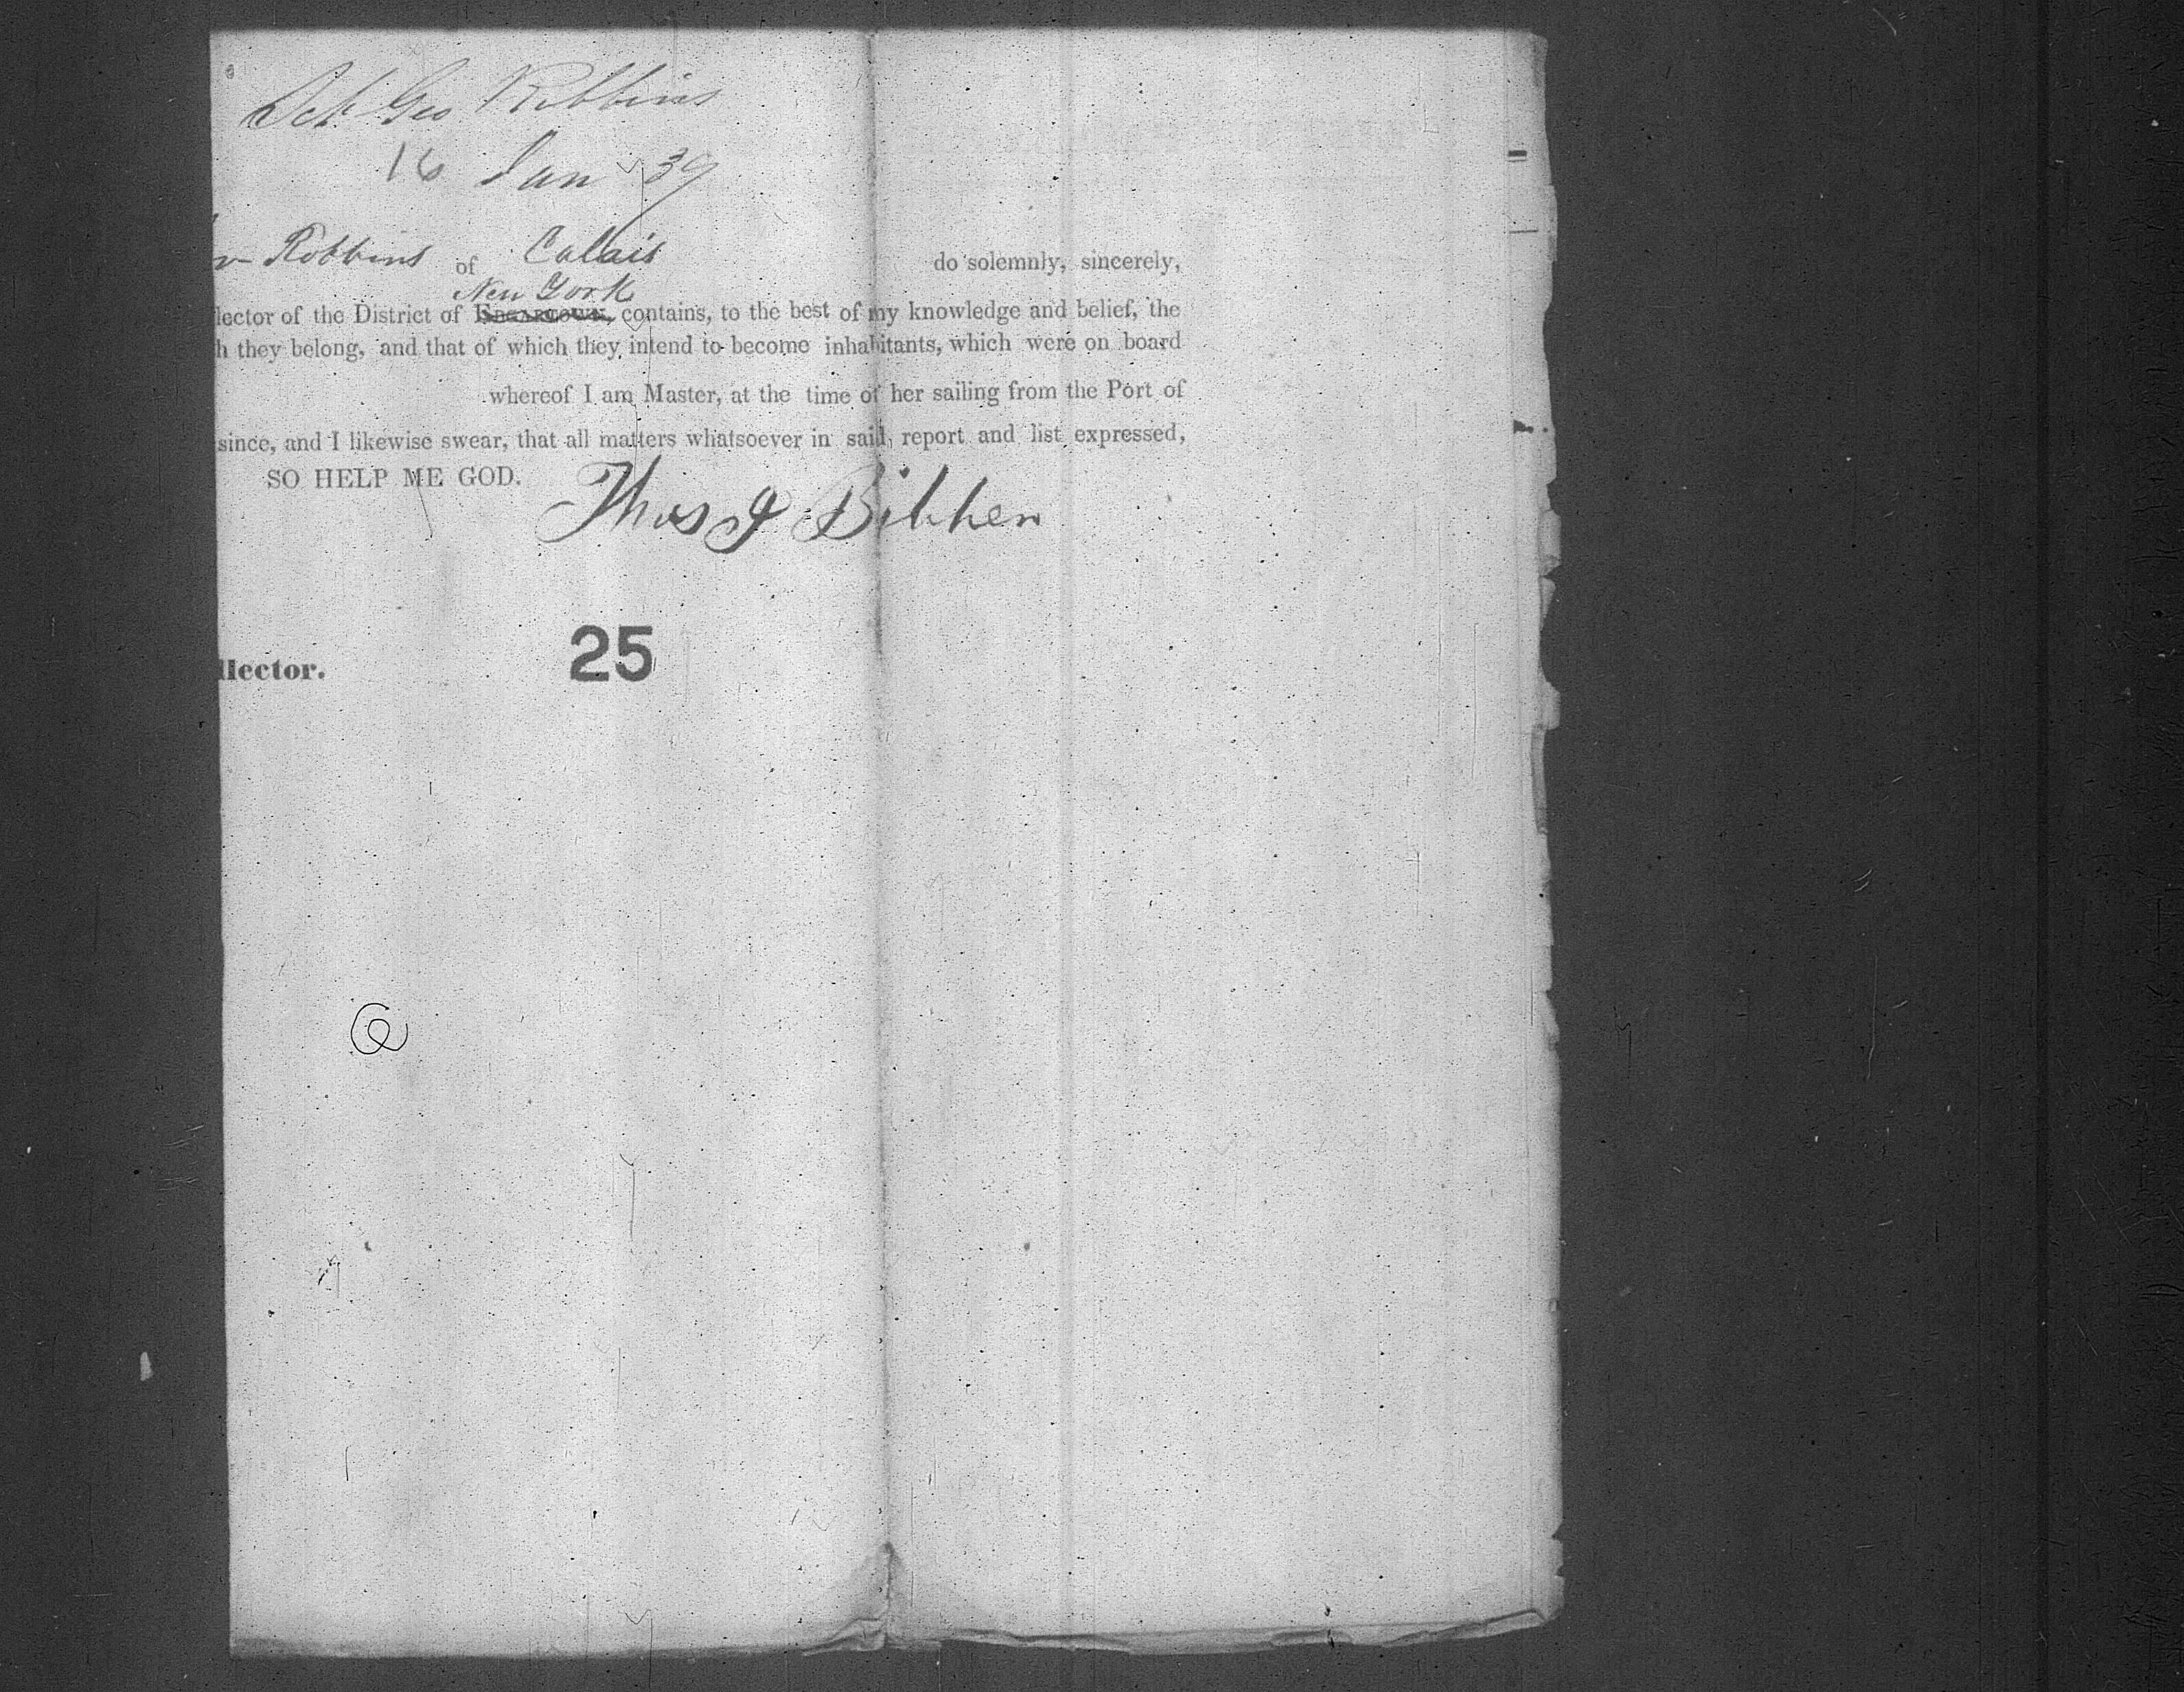 Sch Geo Robbins
16 Jan 39
Robbins of Calais do solemnly, sincerely,
New York
llector of the District of Edgartown, contains, to the best of my knowledge and belief, the
h they belong, and that of which they intend to become inhabitants, which were on board
whereof I am Master, at the time of her sailing from the Port of
since, and I likewise swear, that all matters whatsoever in said report and list expressed,
SO HELP ME GOD.
Thos J Bibber
25
llector.